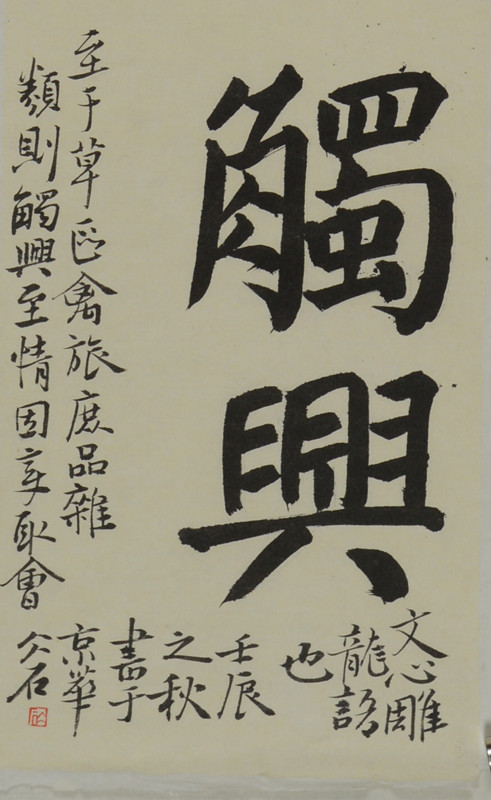 觸興
文心雕
龍語
也
至于草區禽旅庶品雜
類則觸興至情因變取會
壬辰
之秋
書于
京華
介石